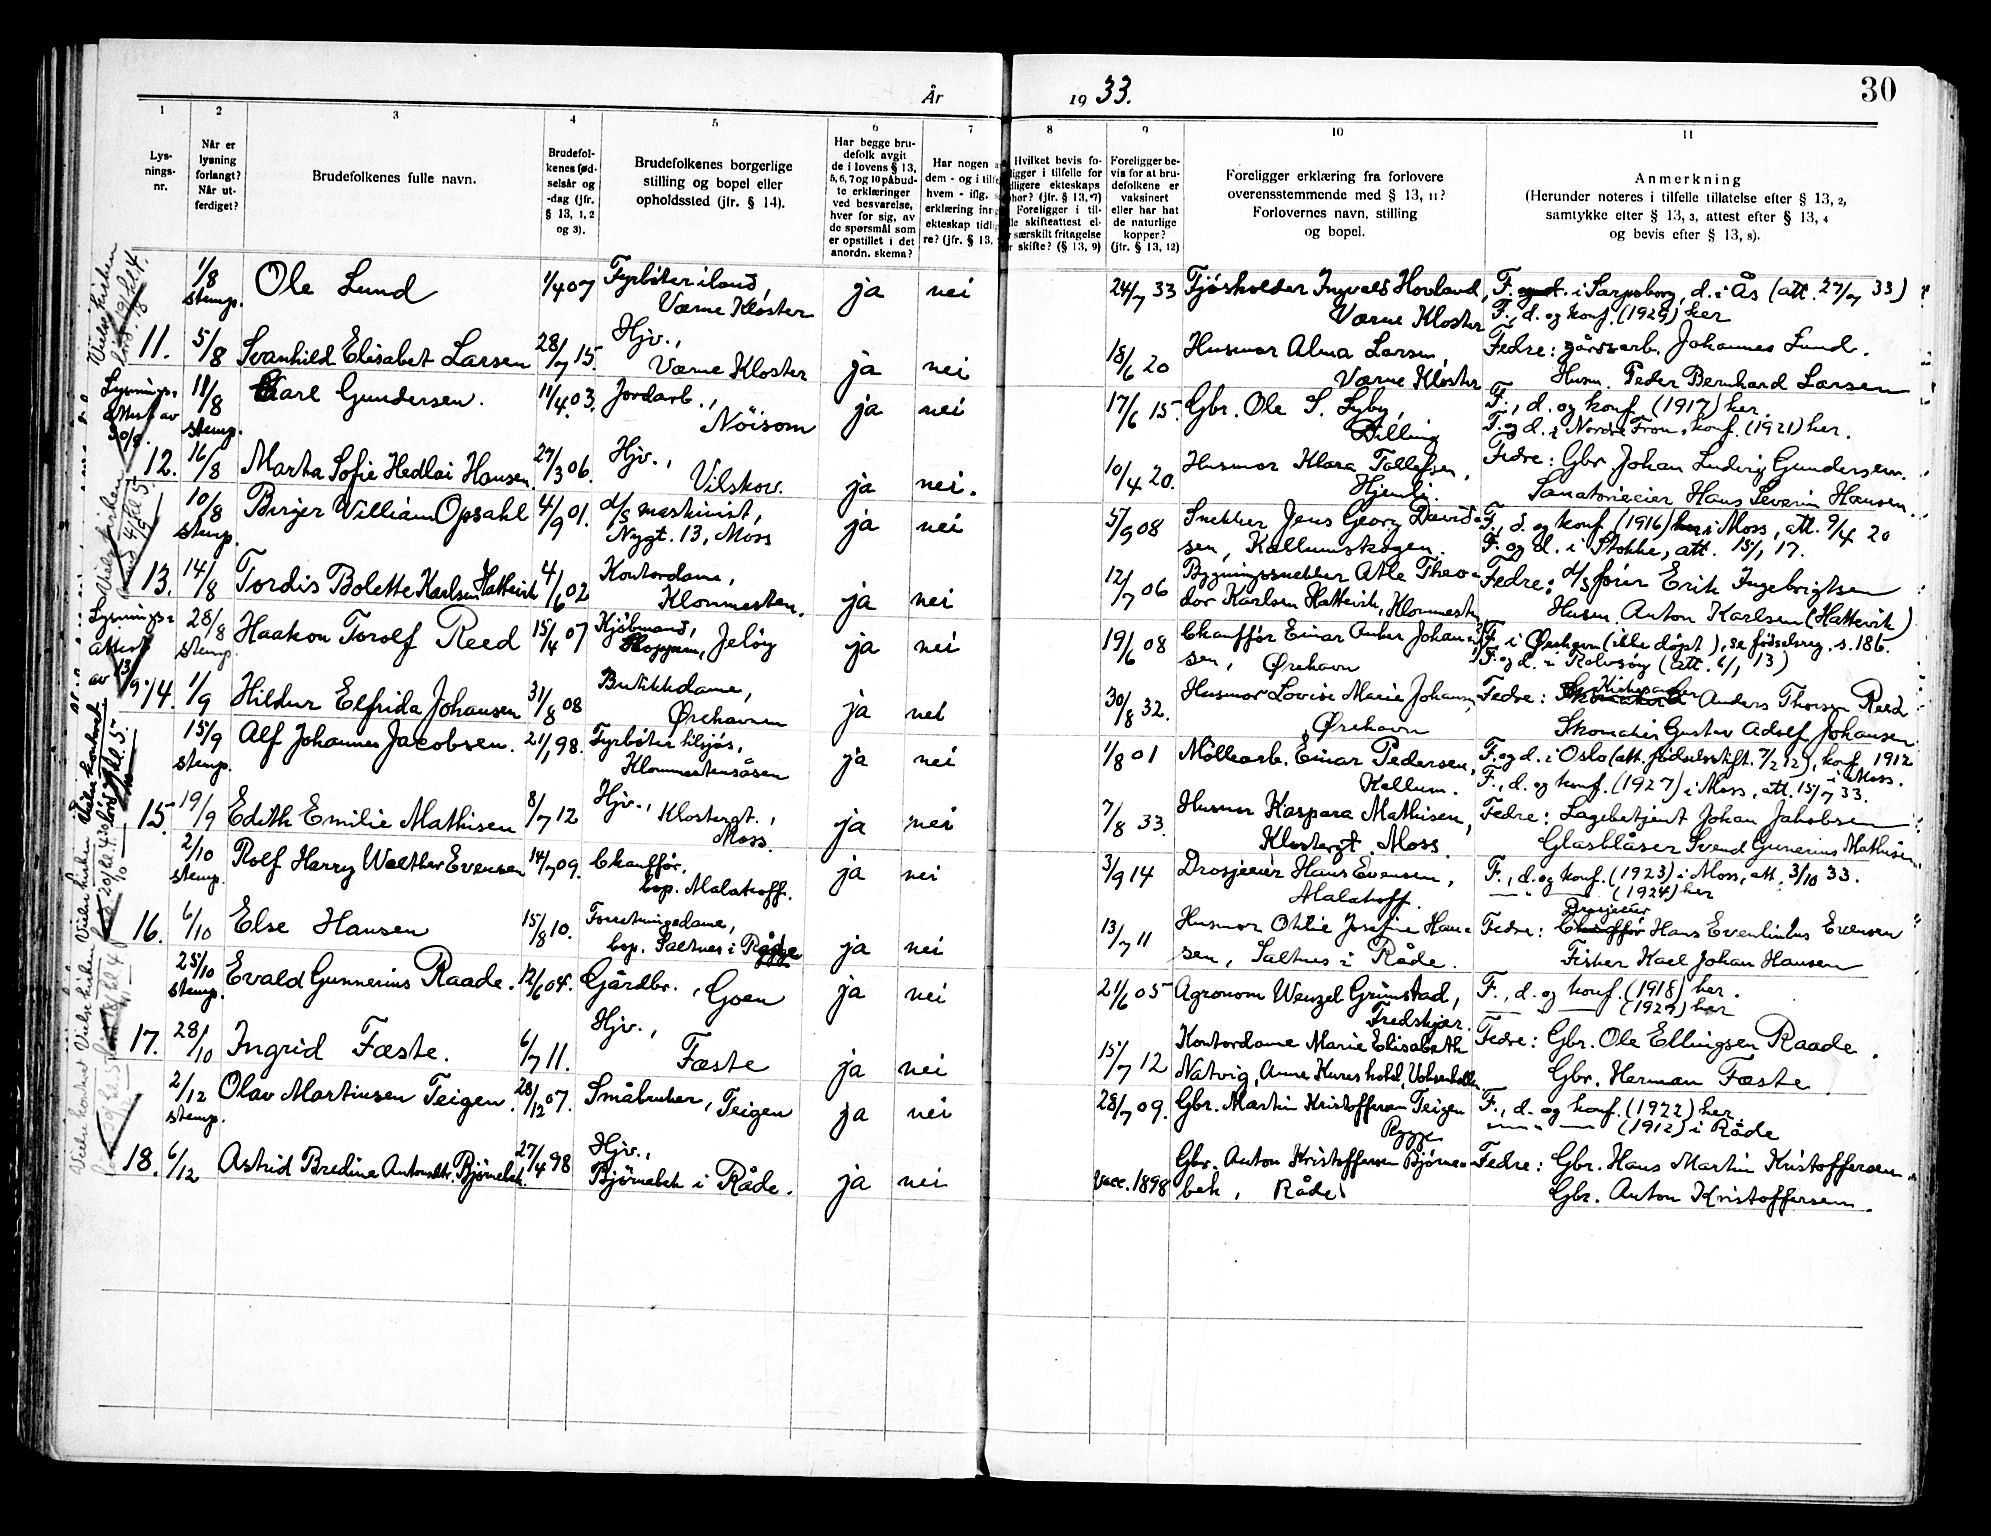 År 1933.
30
1 2 3 4 5 6 7 8 9 10 11
Lys-
nings-
nr.
Når er
lysning
forlangt?
Når ut-
ferdiget?
Brudefolkenes fulle navn.
Brudefol-
kenes fød-
selsår og
-dag (jfr.
§ 13, 1, 2
og 3).
Brudefolkenes borgerlige
stilling og bopel eller
opholdssted (jfr. § 14).
Har begge bru-
defolk avgit
de i lovens § 13,
5, 6, 7 og 10 påbud-
te erklæringer
ved besvarelse,
hver for sig, av
de spørsmål som
er opstillet i det
anordn. skema?
Har nogen a
dem - og i tilfe
hvem - iflg. s
erklæring inng
ekteskap tidlig
re? (jfr. § 13,
Hvilket bevis fo-
ligger i tilfelle for
dligere ekteskaps
phør? (jfr. § 13, 7)
Foreligger i til-
lle skifteattest el-
r særskilt fritagelse
r skifte? (§ 13, 9)
Foreligger be-
vis for at bru-
defolkene er
vaksinert
eller har hat
de naturlige
kopper?
(jfr. § 13, 12)
Foreligger erklæring fra forlovere
overensstemmende med § 13, 11?
Forlovernes navn, stilling
og bopel.
Anmerkning
(Herunder noteres i tilfelle tillatelse efter § 13, 2,
samtykke efter § 13, 3, attest efter § 13, 4
og bevis efter § 13, 8).
1/8 stemp. Ole Lund 1/4 07 Fyrbøter iland, Værne Kloster ja nei 24/7 33 Fjøsholder Ingvald Hovland, Værne Kloster F. og d. i Sarpsborg, d. i Ås (att. 27/7 33)
F., d. og konf. (1929) her
11. 5/8 Svanhild Elisabet Larsen 28/7 15. Hjv., Værne Kloster ja nei 18/6 20 Husmor Alma Larsen, Værne Kloster Fedre: gårdsarb. Johannes Lund.
Husm. Peder Bernhard Larsen
Lysnings-
attest av
30/8.
11/8 stemp. Carl Gundersen. 11/4 03. Jordarb., Nöisom ja nei 17/6 15. Gbr. Ole S. Lyby, Dilling F., d. og konf. (1917) her.
F. og d. i Nordre Fron, konf. (1921) her.
12. 16/8 Marta Sofie Hedlai Hansen. 27/3 06. Hjv., Vilskov. ja nei. 10/4 20. Husmor Klara Tollefsen, Hjemli. Fedre: Gbr Johan Ludvig Gundersen.
Sanatorieeier Hans Severin Hansen.
10/8 stemp. Birger Villiam Opsahl 4/9 01. d/s maskinist, Nygt. 13, Moss ja nei 5/9 08 Snekker Jens Georg David-
sen, Kallumskogen. F., d. og konf. (1916) her i Moss, att. 9/4 20
F. og d. i Stokke, att. 15/1 17.
13. 14/8 Tordis Bolette Karlsen Hattevik 4/6 02 Kontordame, Klommesten. ja nei 12/7 06 Bygningssnekker Atle Theo-
dor Karlsen Hattevik, Klommest. Fedre: d/s fører Erik Ingebrigtsen
Husm. Anton Karlsen (Hattevik)
Lysnings-
attest
av 13/9.
28/8 stemp. Haakon Torolf Reed 15/4 07 Kjøbmand, Jeløy ja nei 19/6 08 Chauffør Einar Anker Johan-
sen, Ørehavn F. i Ørehavn (ikke døpt), se fødselsreg. s. 186.
F. og d. i Rolvsøy (att. 6/1 13)
14. 1/9 Hildur Elfrida Johansen 31/8 08 Butikkdame, Ørehavnen ja nei 30/8 32. Husmor Lovise Marie Johansen, Ørehavn Fedre: Anders Thorsen Reed
Skomaker Gustav Adolf Johansen
15/9 stemp. Alf Johannes Jacobsen. 21/1 98. Fyrbøter tilsjøs, Klommestensåsen ja nei 1/8 01 Möllearb. Einar Pedersen, Kallum. F. og d. i Oslo (att. fødselsstift. 7/2 12), konf. 1912
i Moss.
F., d. og konf. (1927) i Moss, att. 15/7 33.
15. 19/9 Edith Emilie Mathisen 8/7 12 Hjv., Klostergt., Moss. ja nei 7/8 33. Husmor Kaspara Mathisen, Klostergt. Moss. Fedre: Lagebetjent Johan Jakobsen
Glasblåser Svend Gunerius Mathisen
2/10 stemp. Rolf Harry Walther Evensen 14/7 09. Chauffør, bop. Malakoff. ja nei 3/9 14 Drosjeeier Hans Evensen, Malakoff. F., d. og konf. (1923) i Moss, att. 3/10 33.
— " — (1924) her
16. 6/10 Else Hansen 15/8 10. Forretningsdame, bop. Saltnes i Rygge ja nei 13/7 11 Husmor Othlie Josefine Han-
sen, Saltnes i Råde. Fedre: Drosjeeier Chauffør Hans Evenlinius Evensen
Fisker Karl Johan Hansen
25/10 stemp. Evald Gunnerius Raade. 12/6 04. Gårdbr., Goen ja nei 21/6 05 Agronom Wenzel Grimstad, Fredskjær. F., d. og konf. (1918) her.
— " — (1927) her
17. 28/10 Ingrid Fæste. 6/7 11. Hjv., Fæste ja nei 15/7 12 Kontordame Marie Elisabeth
Natvig, Anne Kures hold, Voksenkollen Fedre: Gbr. Ole Ellingsen Raade.
Gbr. Herman Fæste
2/12 stemp. Olav Martinsen Teigen. 28/12 07. Småbruker, Teigen ja nei 28/7 09. Gbr. Martin Kristoffersen Teigen
Rygge F., d. og konf. (1922) her.
— " — (1912) i Råde
18. 6/12 Astrid Bredine Antonsdtr. Bjørnebek. 27/4 98 Hjv., Bjørnebek i Råde. ja nei vacc. 1898 Gbr. Anton Kristoffersen Bjørne-
bek, Råde Fedre: Gbr. Hans Martin Kristoffersen.
Gbr. Anton Kristoffersen.